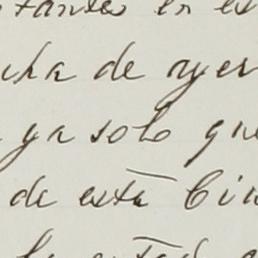 tantes en es
cha de ayer
ya solo que
de esta Ciu
la estad